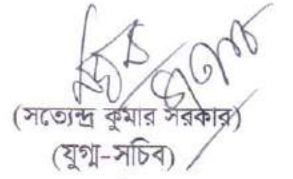 (সত্যেন্দ্র কুমার সরকার)
(যুগ্ম-সচিব)